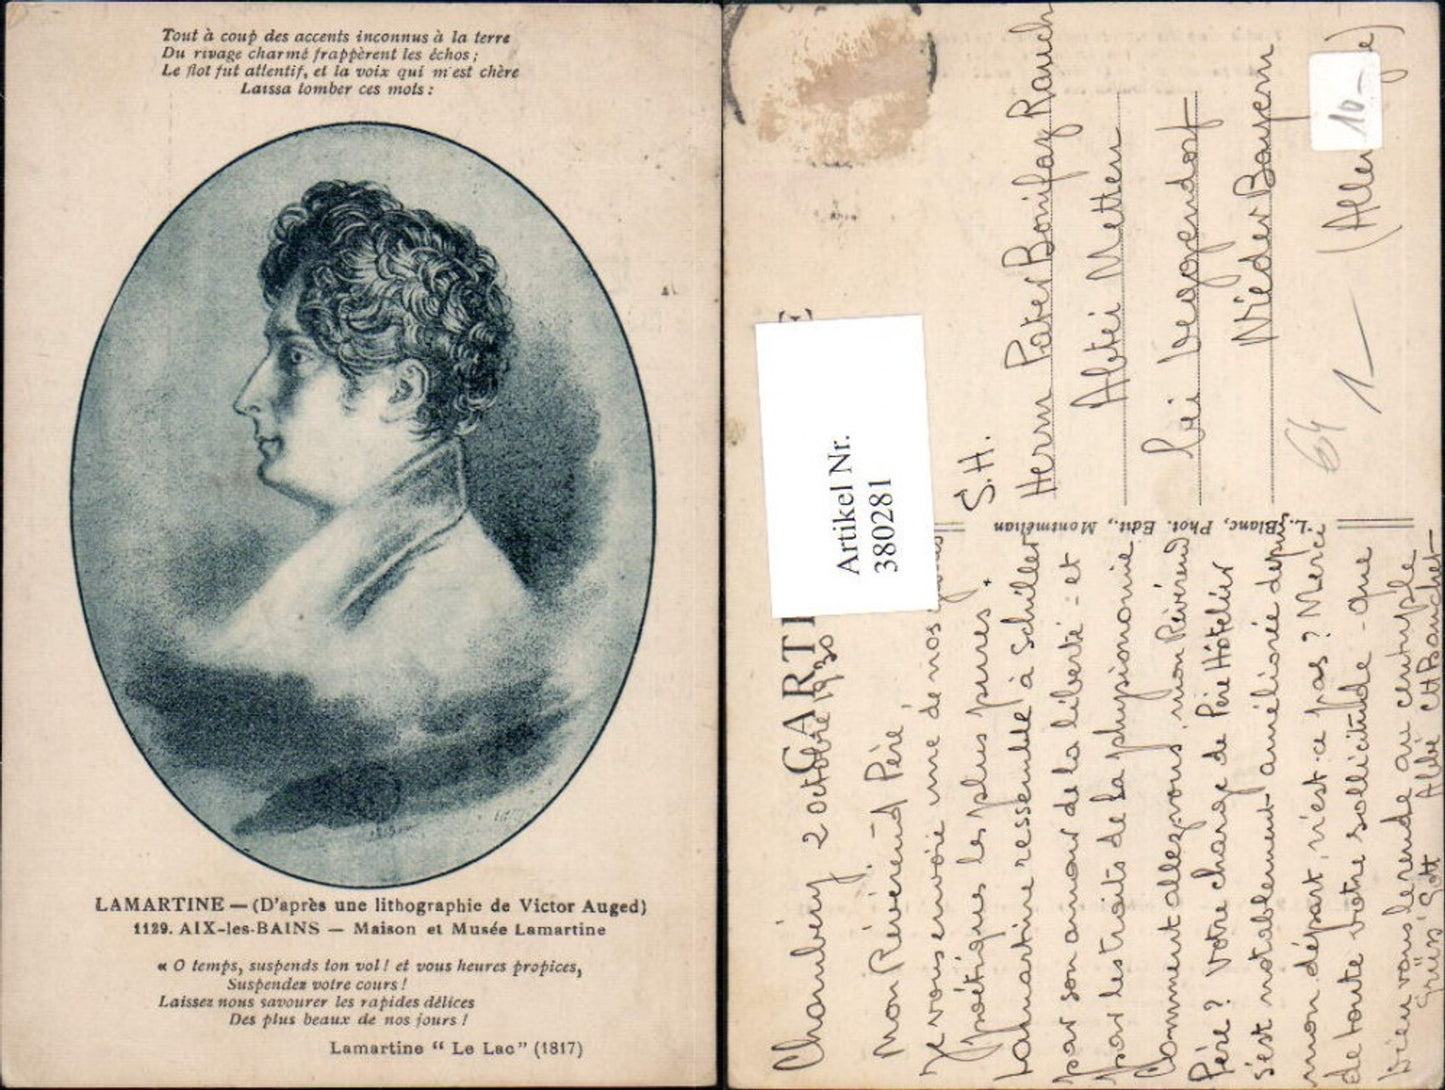 Tout à coup des accents inconnus à la terre
Du rivage charmé frappèrent les échos ;
Le flot fut attentif, et la voix qui m'est chère
Laissa tomber ces mots :
LAMARTINE — (D'après une lithographie de Victor Auged)
1129. AIX-les-BAINS — Maison et Musée Lamartine
« O temps, suspends ton vol ! et vous heures propices,
Suspendez votre cours !
Laissez nous savourer les rapides délices
Des plus beaux de nos jours !
Lamartine “ Le Lac” (1817)
CARTE
Artikel Nr.
380281
Chambéry 2 Octobre 1930
Mon Révérend Père,
Je vous envoie une de nos
poétiques les plus pures.
Lamartine ressemble à Schiller
par son amour de la liberté - et
par les traits de la physionomie
Comment allez-vous, mon Révérend
Père ? Votre charge de Père Hôtelier
s'est notablement améliorée depuis
mon départ, n'est-ce pas ? Merci
de toute votre sollicitude - Que
Dieu vous le rende au centuple
Grüss Gott Abbé
L. Blanc, Phot. Edit., Montmélian
S.H.
Herrn Pater Bonifaz Rauch
Abtei Metten
bei Deggendorf
Nieder Bayern
(Alle
10-
1-
64